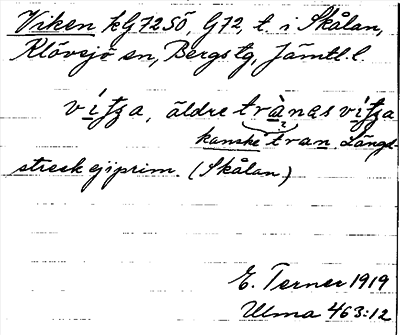 Viken kG72SÖ, G72, t. i Skålan,
Klövsjö sn, Bergs tg, Jämtl. l.
vítʃa, äldre trànas vítʃa
kanske tran. Längd-
streck ej i prim. (Skålan)
E. Terner 1919
Ulma 463:12